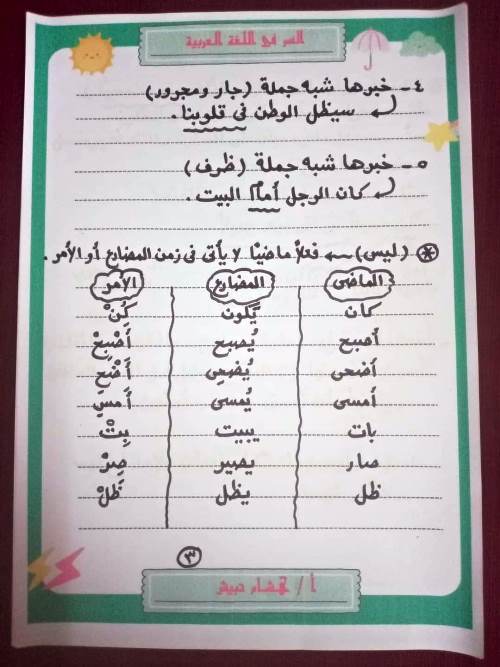 السر في اللغة العربية
٤- خبرها شبه جملة (جار ومجرور)
سيظل الوطن فى قلوبنا.
٥- خبرها شبه جملة (ظرف)
كان الرجل أمام البيت.
(ليس) فعلاً ماضيًا لا يأتى فى زمن المضارع أو الأمر.
الماضى المضارع الأمر
كان يَكون كُنْ
أصبح يُصبح أَصْبِحْ
أضحى يُضحِى أَضْحِ
أمسى يُمسى أَمسِ
بات يبيت بِتْ
صار يصير صِرْ
ظل يظل ظَلْ
٣
أ / هشام حبيش